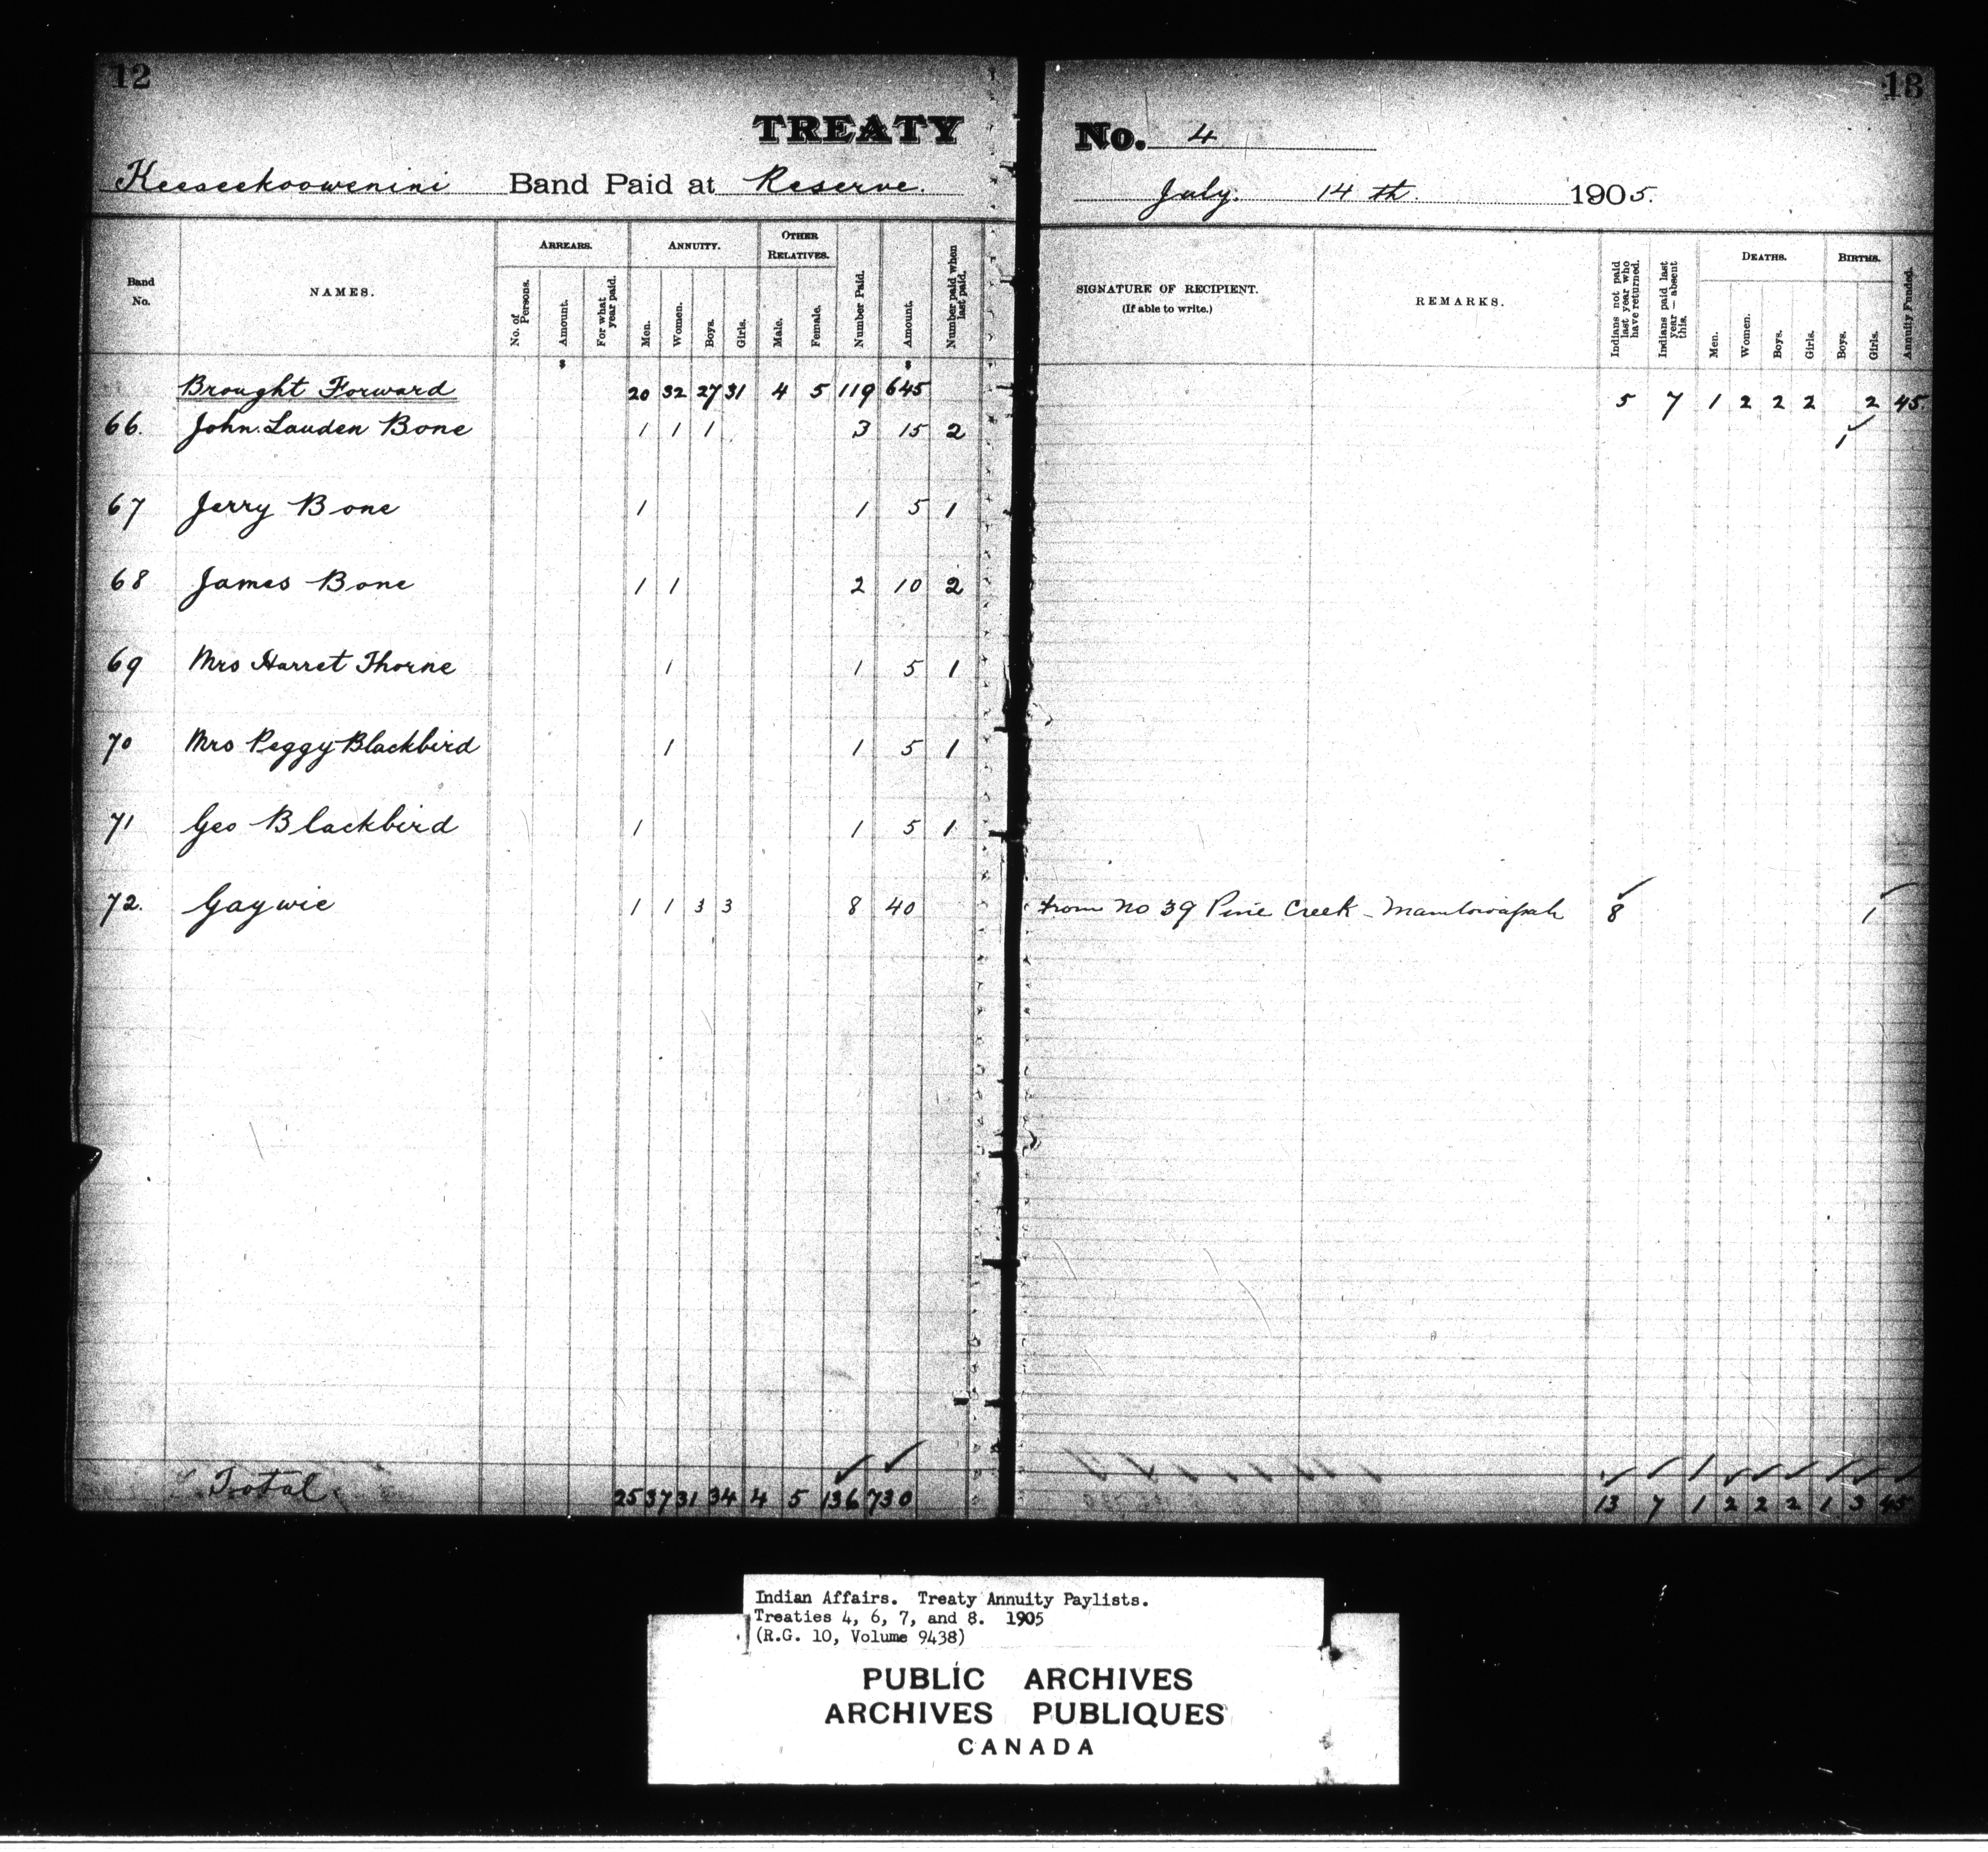 12 13
TREATY No. 4
Keeseekoowenini Band Paid at Reserve. July. 14 th. 1905.
Band No. NAMES. ARREARS. ANNUITY. OTHER RELATIVES. Number Paid. Amount. Number paid when last paid. SIGNATURE OF RECIPIENT. (If able to write.) REMARKS. Indians not paid last year who have returned. Indians paid last year — absent this. DEATHS. BIRTHS. Annuity Funded.
No. of Persons. Amount. For what year paid. Men. Women. Boys. Girls. Male. Female. Men. Women. Boys. Girls. Boys. Girls.
$ $
Brought Forward 20 32 27 31 4 5 119 645 5 7 1 2 2 2 2 45
66. John. Lauden Bone 1 1 1 3 15 2 1
67 Jerry Bone 1 1 5 1
68 James Bone 1 1 2 10 2
69 Mrs Harret Thorne 1 1 5 1
70 Mrs Peggy Blackbird 1 1 5 1
71 Geo Blackbird 1 1 5 1
72. Gaywie 1 1 3 3 8 40 from no 39 Pine Creek - 8 1
Total 25 37 31 34 4 5 136 730 13 7 1 2 2 2 1 3 45
Indian Affairs. Treaty Annuity Paylists.
Treaties 4, 6, 7, and 8. 1905
(R.G. 10, Volume 9438)
PUBLIC ARCHIVES
ARCHIVES PUBLIQUES
CANADA